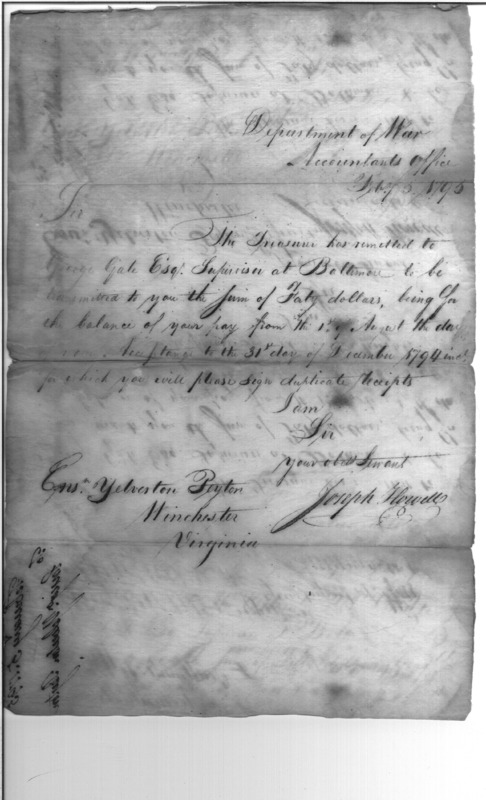 Department of War
Accountants Office
Feby 5. 1795
Sir
The Treasurer has remitted to
George Gale Esqr. Supervisor at Baltimore to be
transmitted to you the sum of Forty dollars, being for
the balance of your pay from the 1st of August the day
Acceptance to the 31st day of December 1794
for which you will please sign duplicate receipts
I am
Sir
your obdt Servant
Joseph Howell
Ensn. Yelverton Peyton
Winchester
Virginia